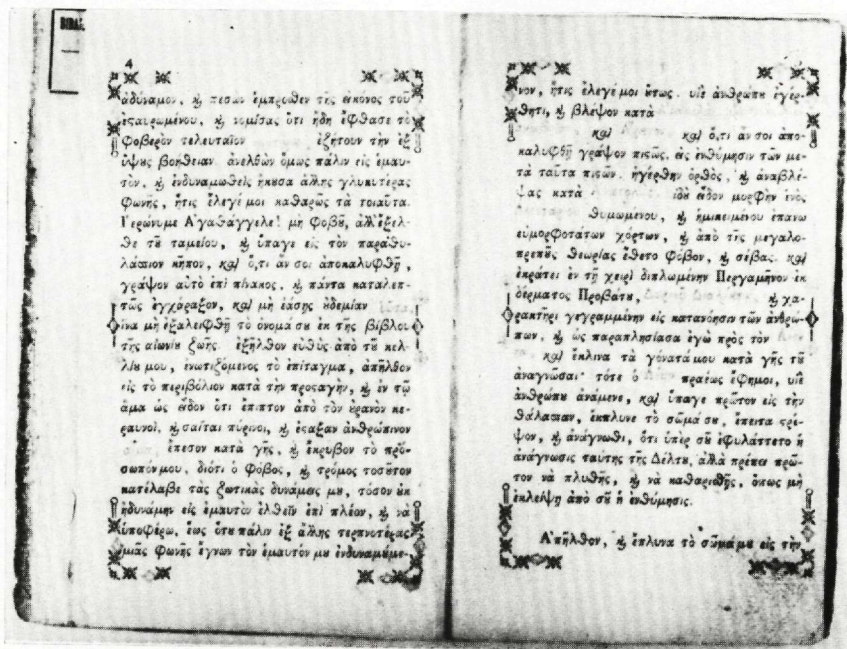 ΒΙΒΛ
4
ἀδύναμον, ϗ πεσὼν ἔμπροσθεν τῆς εἰκόνος τοῦ
ἐσταυρωμένου, ϗ νομίσας ὅτι ἤδη ἔφθασε τὸ
φοβερὸν τελευταῖον ἐζήτουν τὴν ἐξ
ὕψους βοήθειαν ἀνελθὼν ὅμως πάλιν εἰς ἐμαυ-
τὸν, ϗ ἐνδυναμωθεὶς ἤκουσα ἄλλης γλυκυτέρας
φωνῆς, ἥτις ἔλεγέ μοι καθαρῶς τὰ τοιαῦτα.
Γερώνυμε Ἀγαθάγγελε! μὴ φοβοῦ, ἀλλ' ἔξελ-
θε τοῦ ταμείου, ϗ ὕπαγε εἰς τὸν παραθα-
λάσσιον κῆπον, καὶ ὅ,τι ἄν σοι ἀποκαλυφθῇ,
γράψον αὐτὸ ἐπὶ πίνακος, ϗ πάντα καταλεπ-
τῶς ἐγχάραξον, καὶ μὴ ἐάσῃς οὐδεμίαν
ἵνα μὴ ἐξαλειφθῇ τὸ ὄνομά σου ἐκ τῆς βίβλου
τῆς αἰωνίου ζωῆς. ἐξῆλθον εὐθὺς ἀπὸ τοῦ κελ-
λίου μου, ἐνωτιζόμενος τὸ ἐπίταγμα, ἀπῆλθον
εἰς τὸ περιβόλιον κατὰ τὴν προσαγὴν, ϗ ἐν τῷ
ἅμα ὡς εἶδον ὅτι ἔπιπτον ἀπὸ τὸν οὐρανὸν κε-
ραυνοὶ, ϗ σαΐται πύρινοι, ϗ ἔσταξαν ἀνθρώπινον
αἷμα, ἔπεσον κατὰ γῆς, ϗ ἔκρυβον τὸ πρό-
σωπόν μου, διότι ὁ φόβος, ϗ τρόμος τοσοῦτον
κατέλαβε τὰς ζωτικὰς δυνάμεις μου, τόσον οὐκ
ἠδυνάμην εἰς ἐμαυτὸν ἐλθεῖν ἐπὶ πλέον, ϗ νὰ
ὑποφέρω, ἕως ὅτου πάλιν ἐξ ἄλλης τερπνοτέρας
μιᾶς φωνῆς ἔγνων τὸν ἐμαυτόν μου ἐνδυναμούμε-
νον, ἥτις ἔλεγέ μοι οὕτως. υἱὲ ἀνθρώπου ἐγέρ-
θητι, ϗ βλέψον κατὰ
καὶ καὶ ὅ,τι ἄν σοι ἀπο-
καλυφθῇ γράψον πιστῶς, εἰς ἐνθύμησιν τῶν με-
τὰ ταῦτα πιστῶν. ἠγέρθην ὀρθὸς, ϗ ἀναβλέ-
ψας κατὰ ἰδοὺ εἶδον μορφὴν ἑνὸς
θυμωμένου, ϗ ἡμικειμένου ἐπάνω
εὐμορφοτάτων χόρτων, ϗ ἀπὸ τῆς μεγαλο-
πρεποῦς θεωρίας ἔθετο φόβον, ϗ σέβας. καὶ
ἐκράτει ἐν τῇ χειρὶ διπλωμένην Περγαμηνὸν ἐκ
δέρματος Προβάτου, ϗ χα-
ρακτῆρι γεγραμμένην εἰς κατανόησιν τῶν ἀνθρώ-
πων, ϗ ὡς παραπλησίασα ἐγὼ πρὸς τὸν
καὶ ἔκλινα τὰ γόνατά μου κατὰ γῆς τοῦ
ἀναγνῶσαι· τότε ὁ πραέως ἔφη μοι, υἱὲ
ἀνθρώπου ἀνάμενε, καὶ ὕπαγε πρῶτον εἰς τὴν
θάλασσαν, ἔκπλυνε τὸ σῶμά σου, ἔπειτα τρέ-
ψον, ϗ ἀνάγνωθι, ὅτι ὑπὲρ σοῦ ἐφυλάττετο ἡ
ἀνάγνωσις ταύτης τῆς Δέλτου, ἀλλὰ πρέπει πρῶ-
τον νὰ πλυθῇς, ϗ νὰ καθαρισθῇς, ὅπως μὴ
ἐκλείψῃ ἀπὸ σοῦ ἡ ἐνθύμησις.
Ἀπῆλθον, ϗ ἔπλυνα τὸ σῶμά μου εἰς τὴν